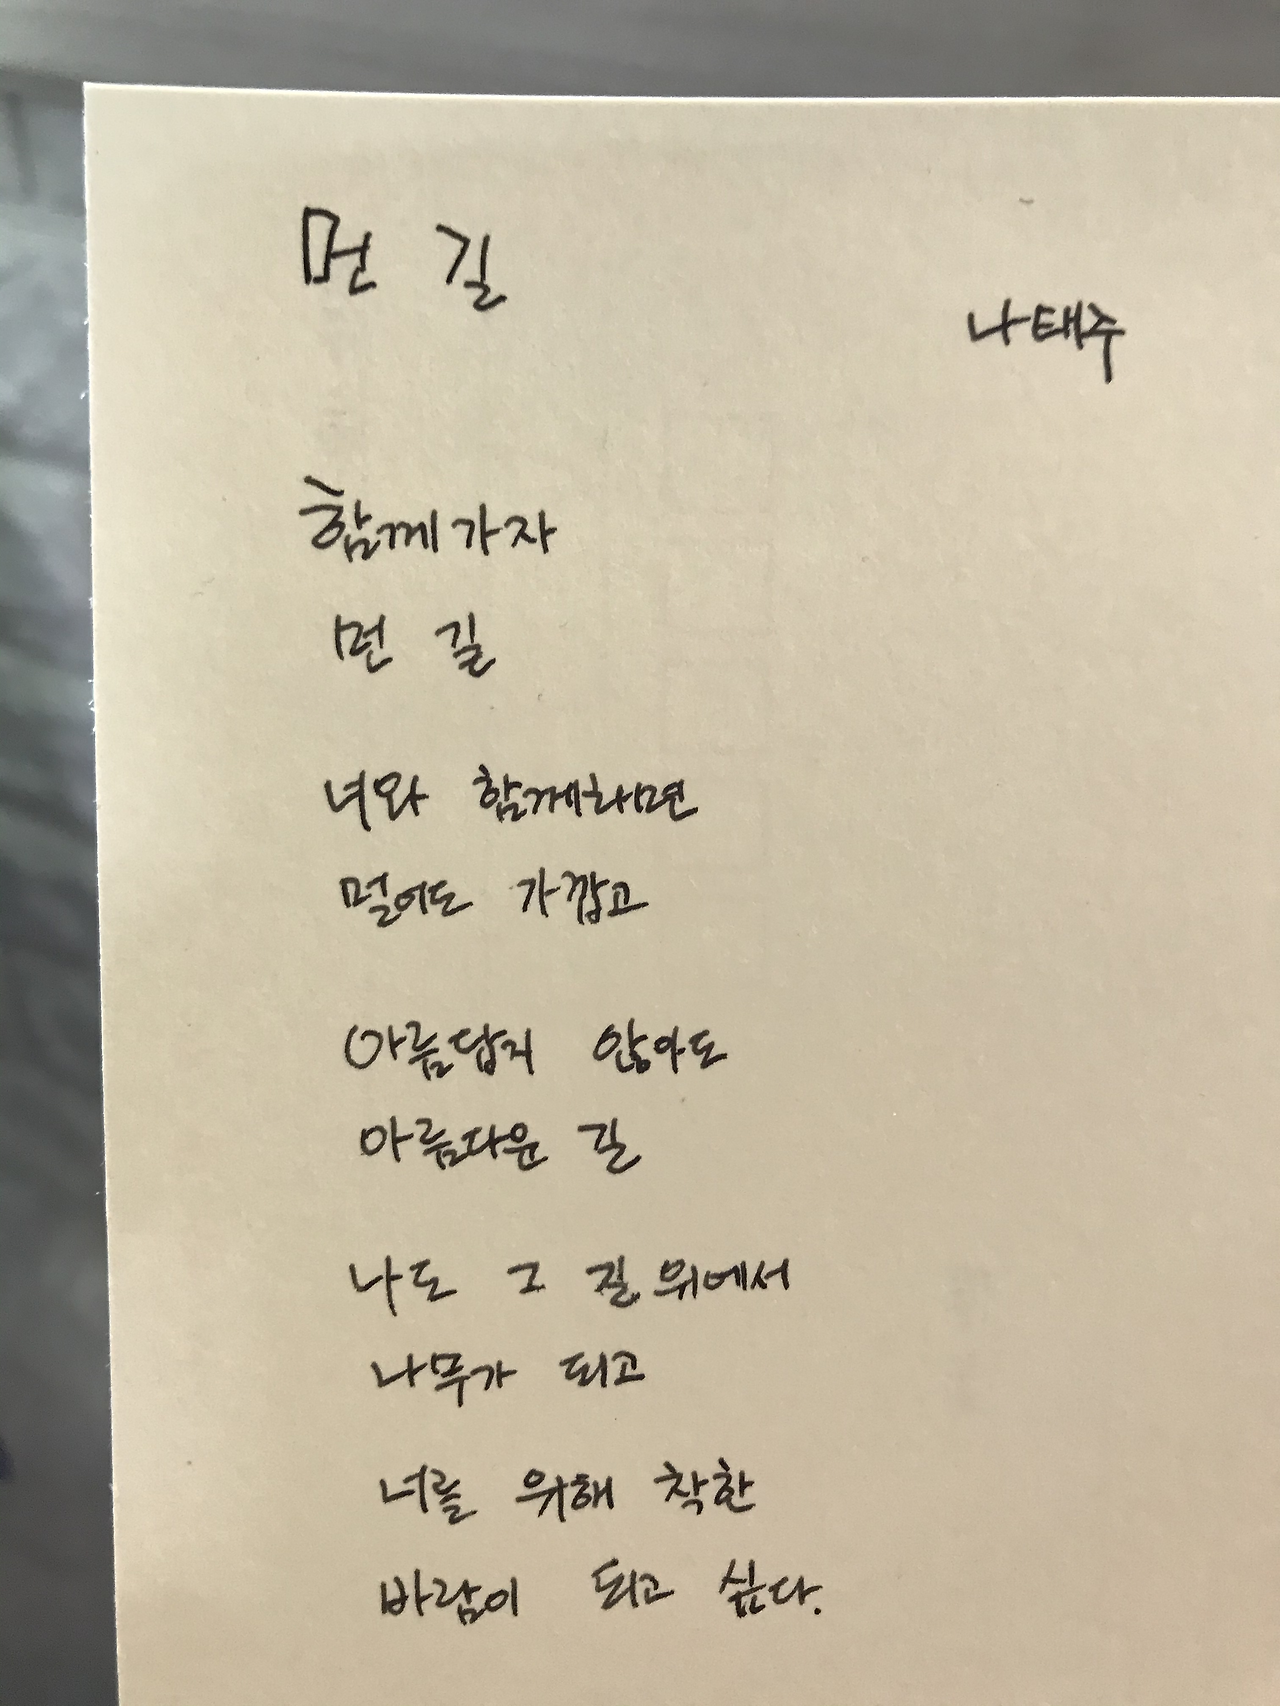 먼 길
나태주
함께 가자
먼 길
너와 함께하면
멀어도 가깝고
아름답지 않아도
아름다운 길
나도 그 길 위에서
나무가 되고
너를 위해 착한
바람이 되고 싶다.